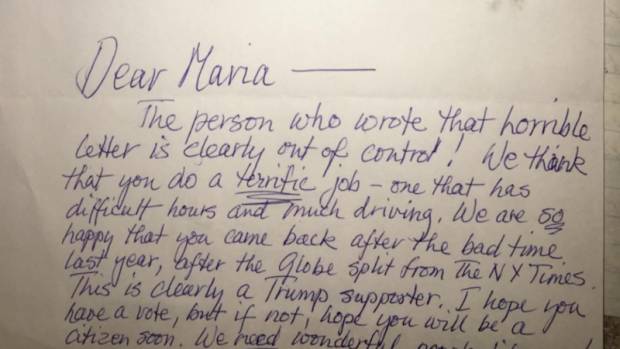 Dear Maria —
The person who wrote that horrible
letter is clearly out of control! We think
that you do a terrific job - one that has
difficult hours and much driving. We are so
happy that you came back after the bad time
last year, after the Globe split from the NY Times.
This is clearly a Trump supporter. I hope you
have a vote, but if not, hope you will be a
citizen soon. We need wonderful